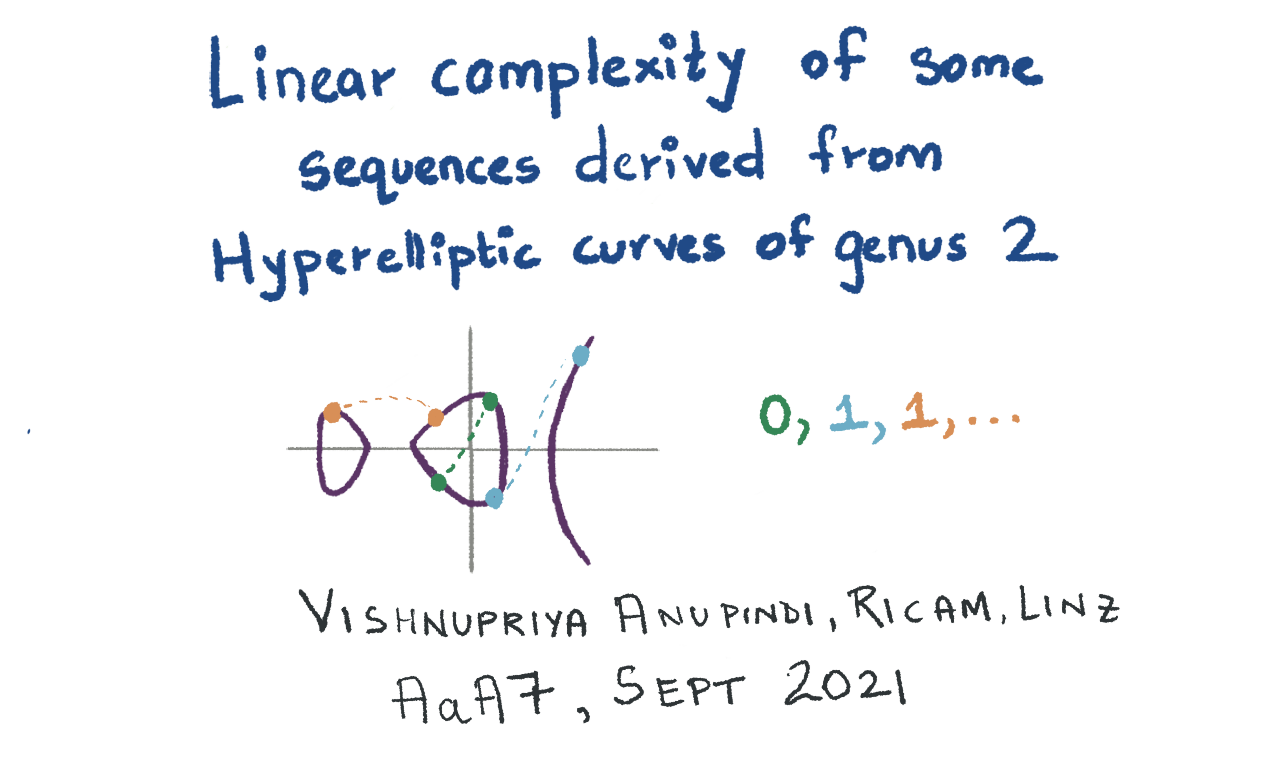 Linear complexity of some
sequences derived from
Hyperelliptic curves of genus 2
0, 1, 1, ...
VISHNUPRIYA ANUPINDI, RICAM, LINZ
AaA7, SEPT 2021